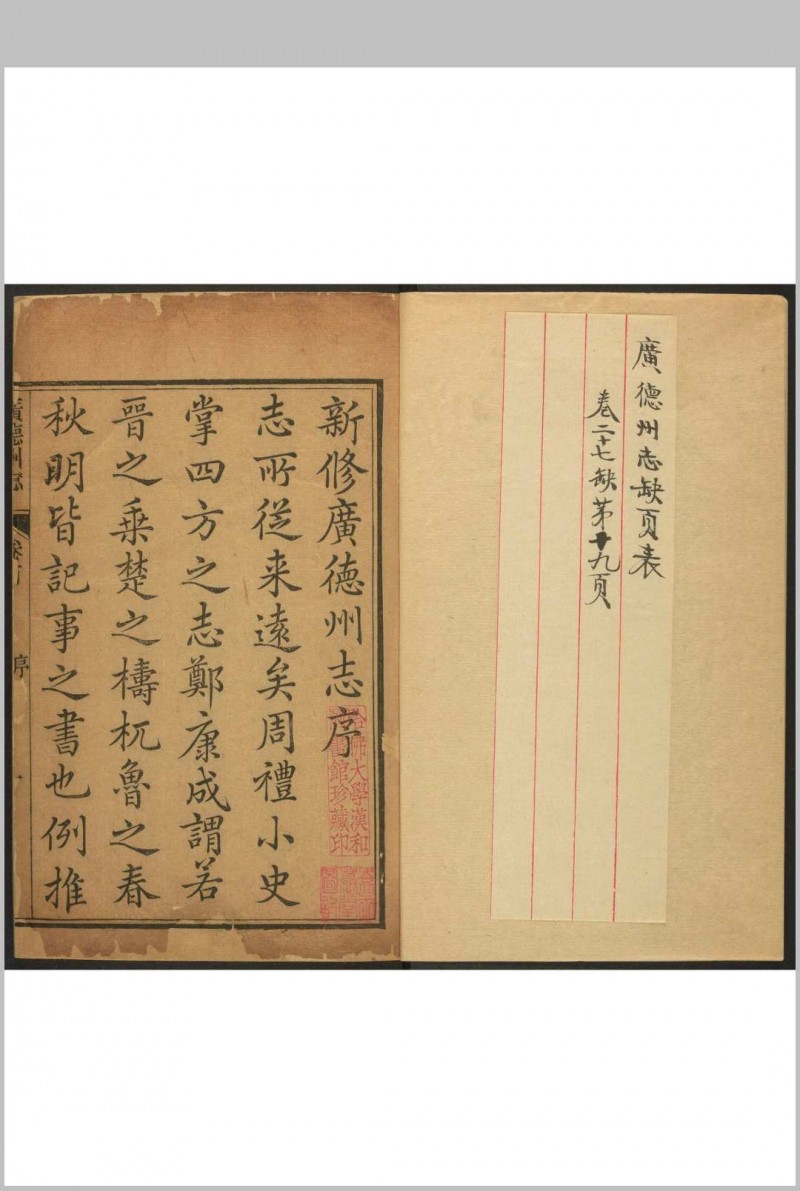 廣德州志缺页表
卷二十七缺第十九頁
新修廣德州志序
志所從来遠矣周禮小史
掌四方之志鄭康成謂若
晉之乘楚之檮杌魯之春
秋明皆記事之書也例推
廣德州志
序
哈佛大學漢和
圖書館珍藏印